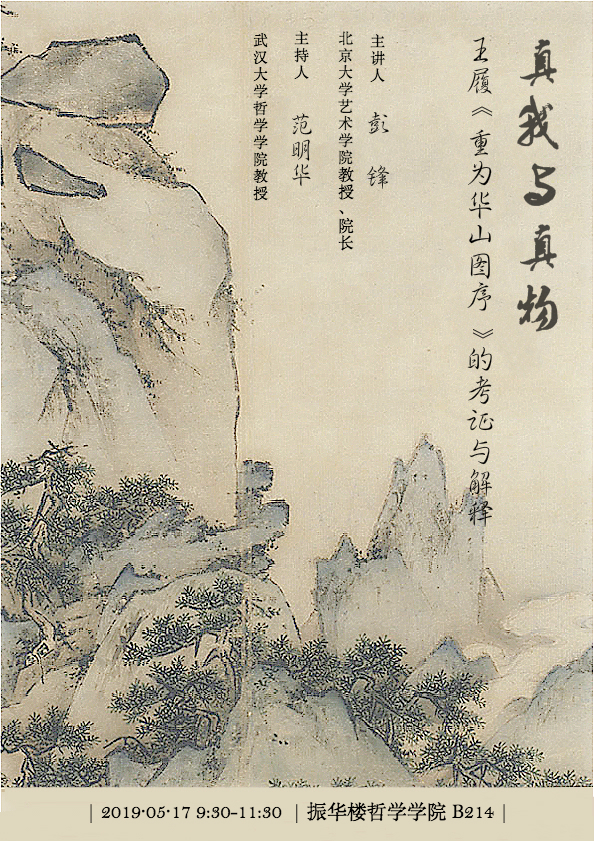 真我与真物
王履《重为华山图序》的考证与解释
主讲人 彭锋
北京大学艺术学院教授、院长
主持人 范明华
武汉大学哲学学院教授
| 2019·05·17 9:30-11:30 | 振华楼哲学学院 B214 |